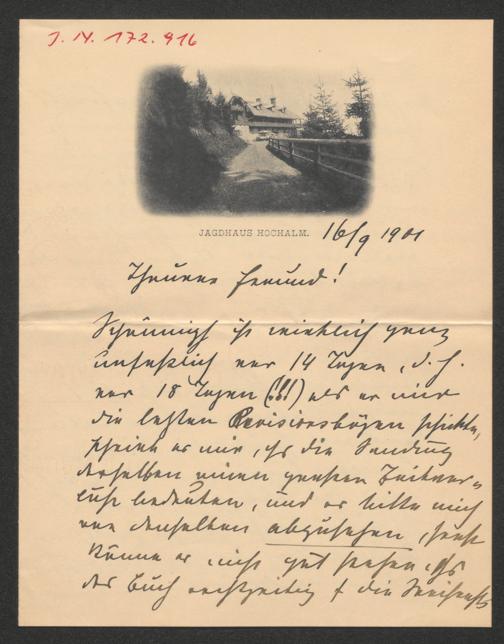 J. N. 172.916
JAGDHAUS HOCHALM. 16/9 1901
Theurer Freund!
ist wirklich ganz
vor 14 Tagen, d. h.
vor 18 Tagen (!!!) als er mir
die letzten Revisionsbögen schickte,
er mir, die Sendung
derselben einen großen Zeitver-
lust bedeuten, und er bitte mich
von denselben abzusehen, sonst
könne er nicht gut
das Buch rechtzeitig f. die